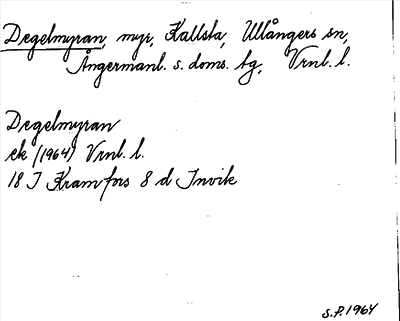 Degelmyran, myr, Kallsta, Ullångers sn,
Ångermanl. s. doms. tg, Vrnl. l.
Degelmyran
ek (1964) Vrnl. l.
18 J Kramfors 8 d Invik
S.P. 1964